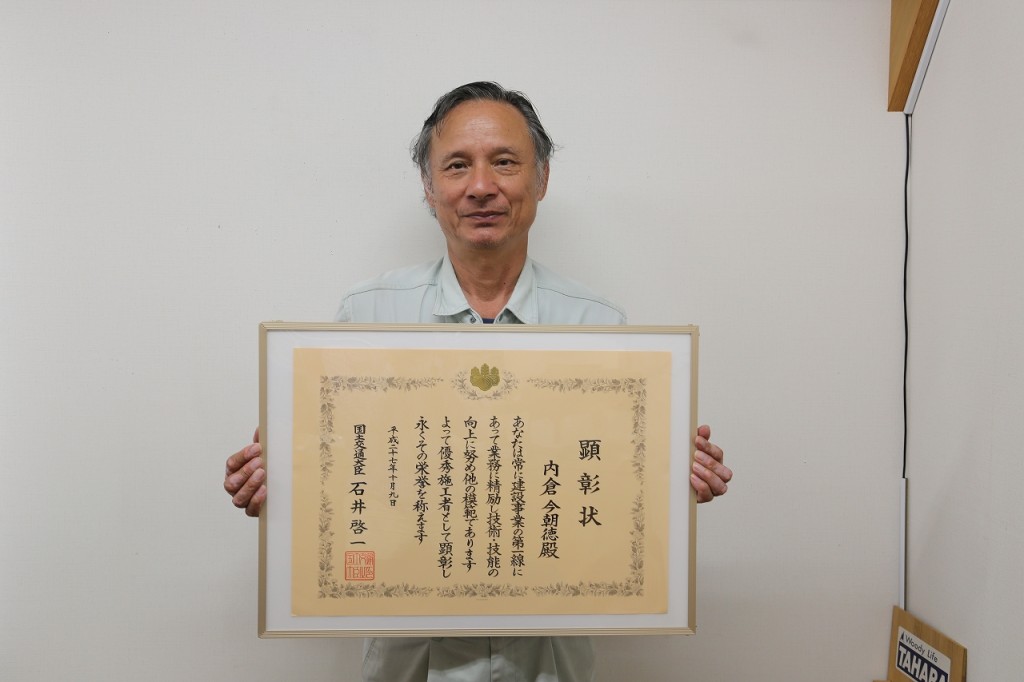 顕彰状
内倉今朝徳殿
あなたは常に建設事業の第一線に
あって業務に精励し技術・技能の
向上に努め他の模範であります
よって優秀施工者として顕彰し
永くその栄誉を称えます
平成二十七年十月九日
国土交通大臣 石井啓一
Woody Life
TAHARA